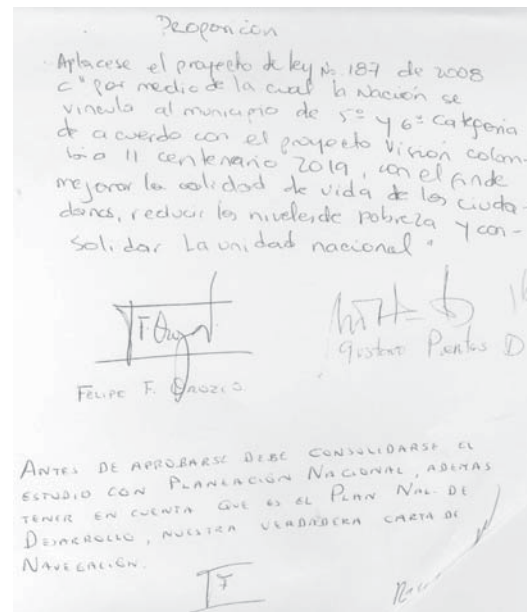 Proposición
Aplacese el proyecto de ley No. 187 de 2008
C "por medio de la cual la Nación se
vincula al municipio de 5ª y 6ª Categoría
de acuerdo con el proyecto Visión colom
bia II centenario 2019, con el fin de
mejorar la calidad de vida de los ciuda-
danos, reducir los niveles de pobreza y con-
solidar la unidad nacional"
F. Orozco
Gustavo Puentes D
FELIPE F. OROZCO.
ANTES DE APROBARSE DEBE CONSOLIDARSE EL
ESTUDIO CON PLANEACIÓN NACIONAL, ADEMAS
TENER EN CUENTA QUE ES EL PLAN NAL. DE
DESARROLLO, NUESTRA VERDADERA CARTA DE
NAVEGACIÓN.